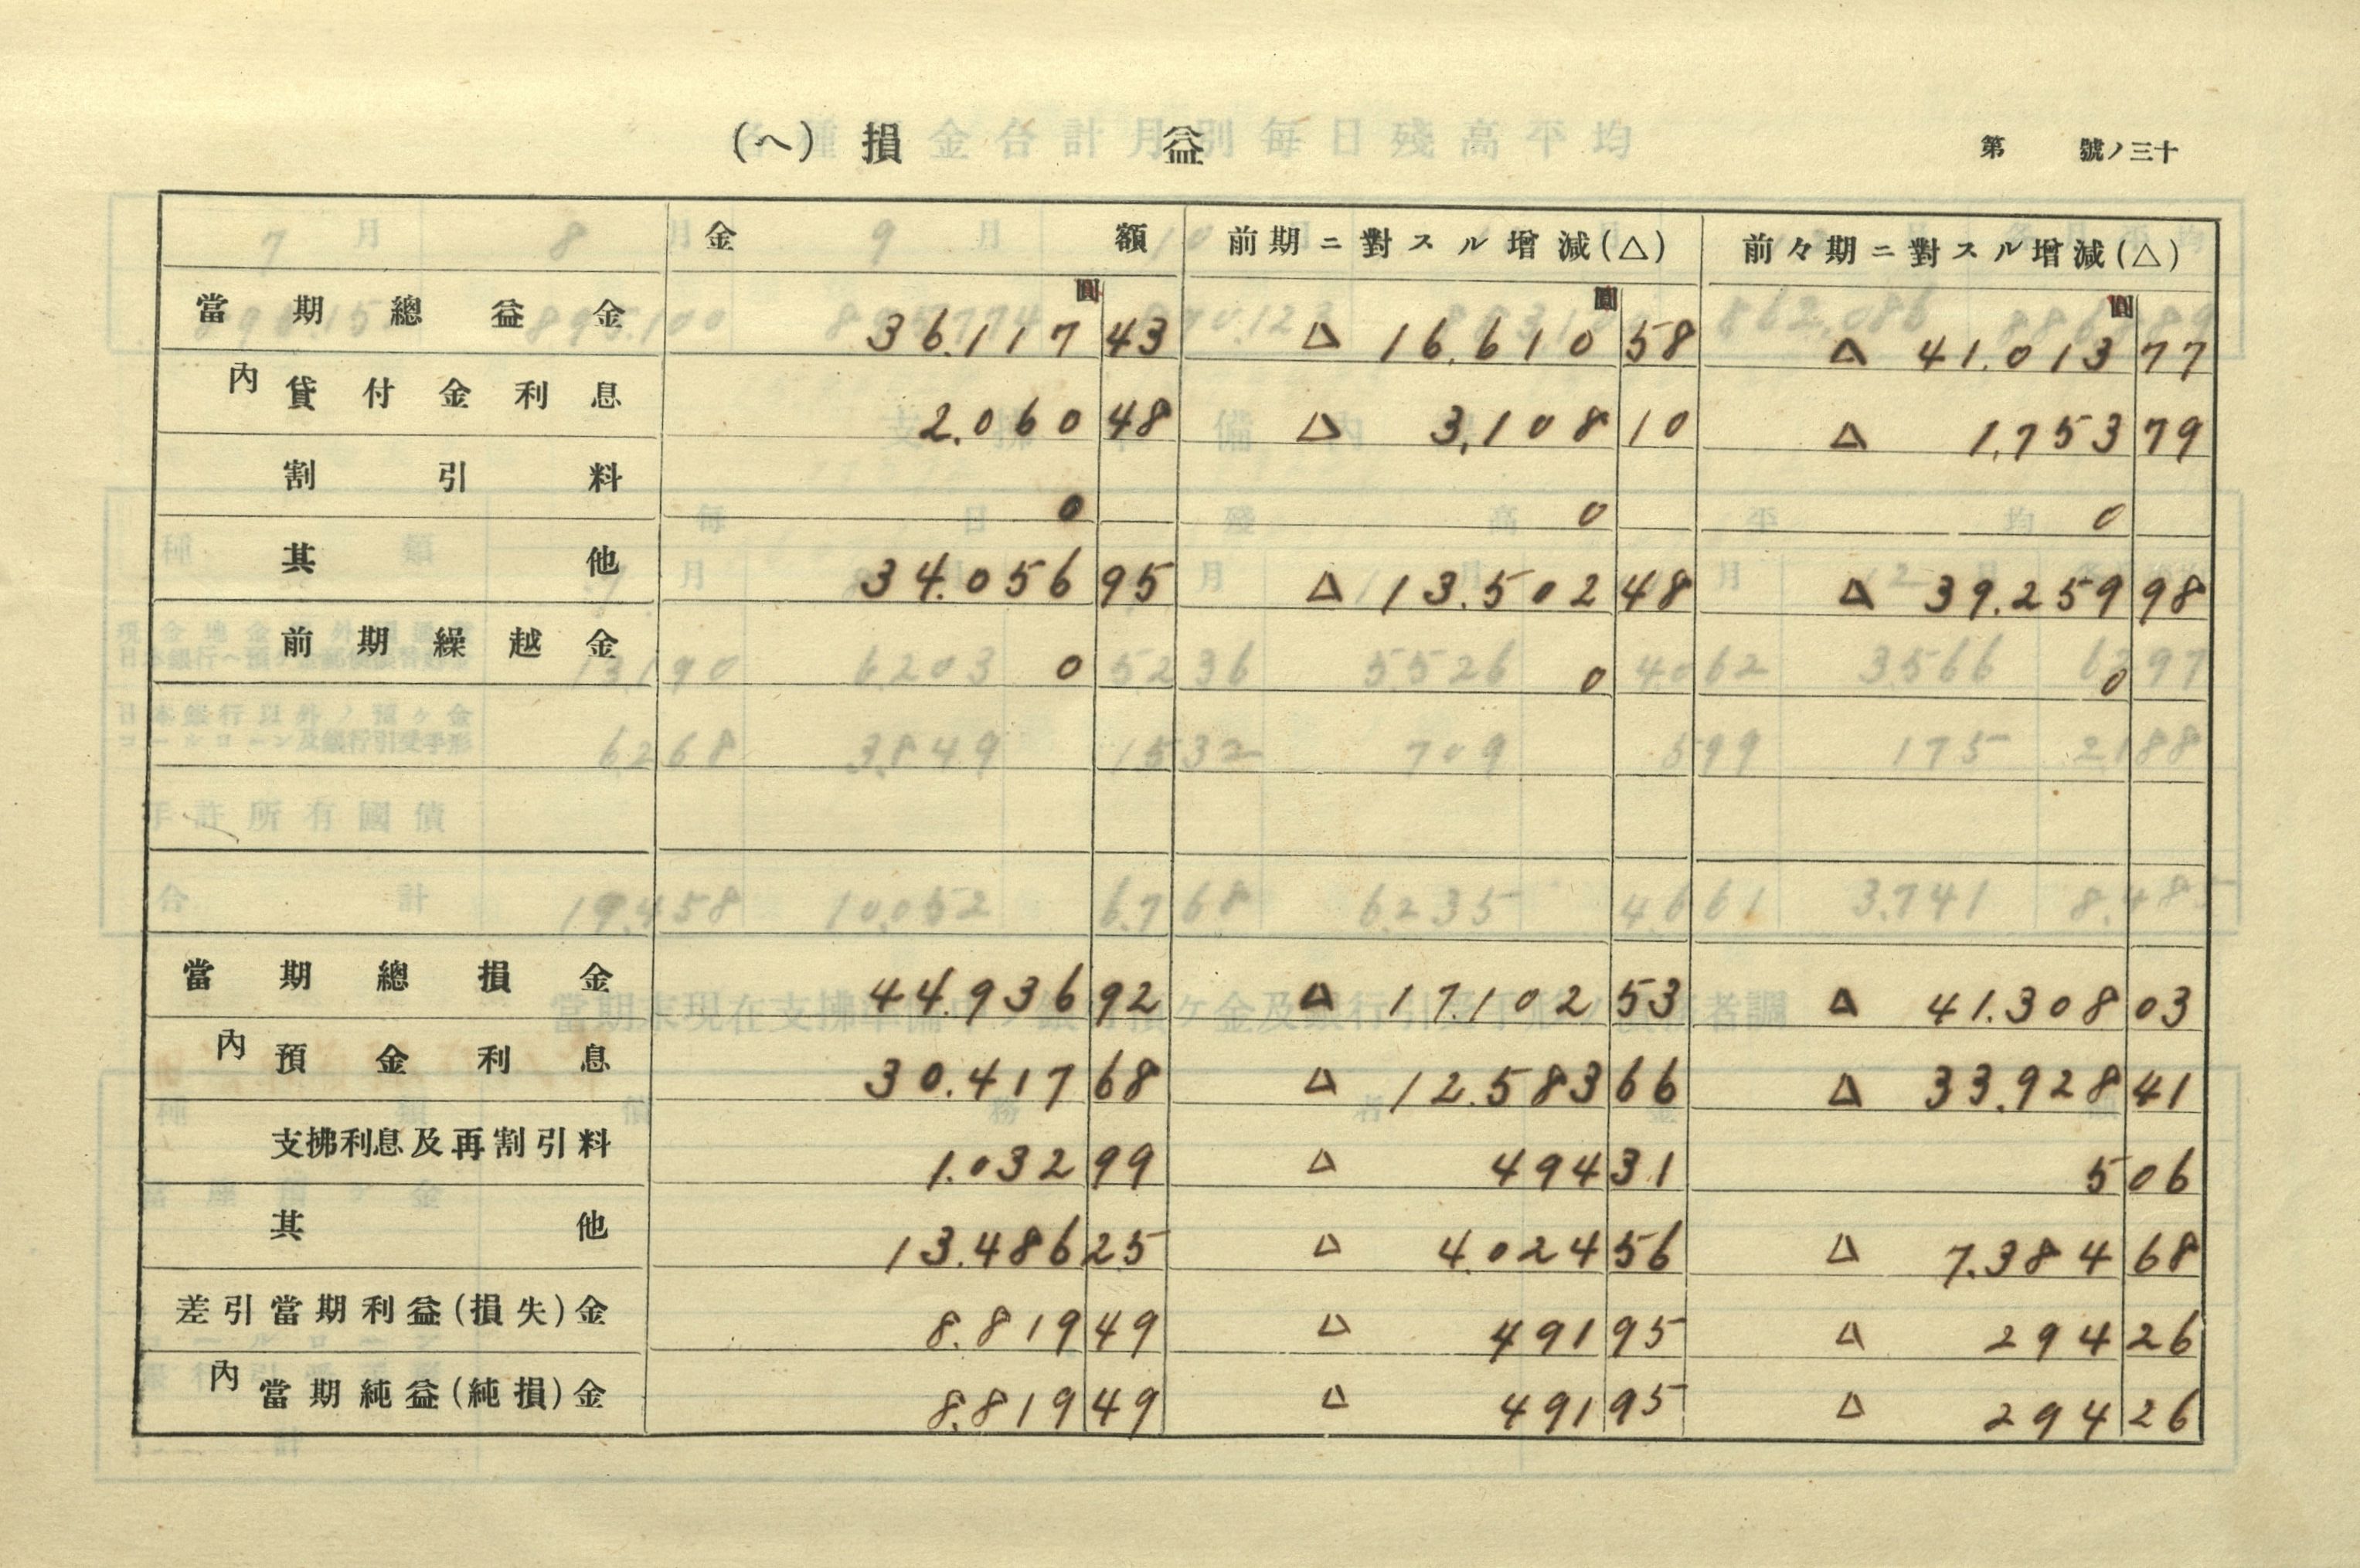 (ヘ) 損 益
第 號ノ三十
金 額 前期ニ對スル增減(△) 前々期ニ對スル增減(△)
圓 圓 圓
當期總益金 36.117 43 △ 16.610 58 △ 41.013 77
內 貸付金利息 2.060 48 △ 3,108 10 △ 1,753 79
割引料 0 0 0
其他 34.056 95 △ 13.502 48 △ 39.259 98
前期繰越金 0 0 0
當期總損金 44.936 92 △ 17.102 53 △ 41.308 03
內 預金利息 30.417 68 △ 12.583 66 △ 33.928 41
支拂利息及再割引料 1.032 99 △ 494 31 5 06
其他 13.486 25 △ 4.024 56 △ 7.384 68
差引當期利益(損失)金 8.819 49 △ 491 95 △ 294 26
內 當期純益(純損)金 8.819 49 △ 491 95 △ 294 26